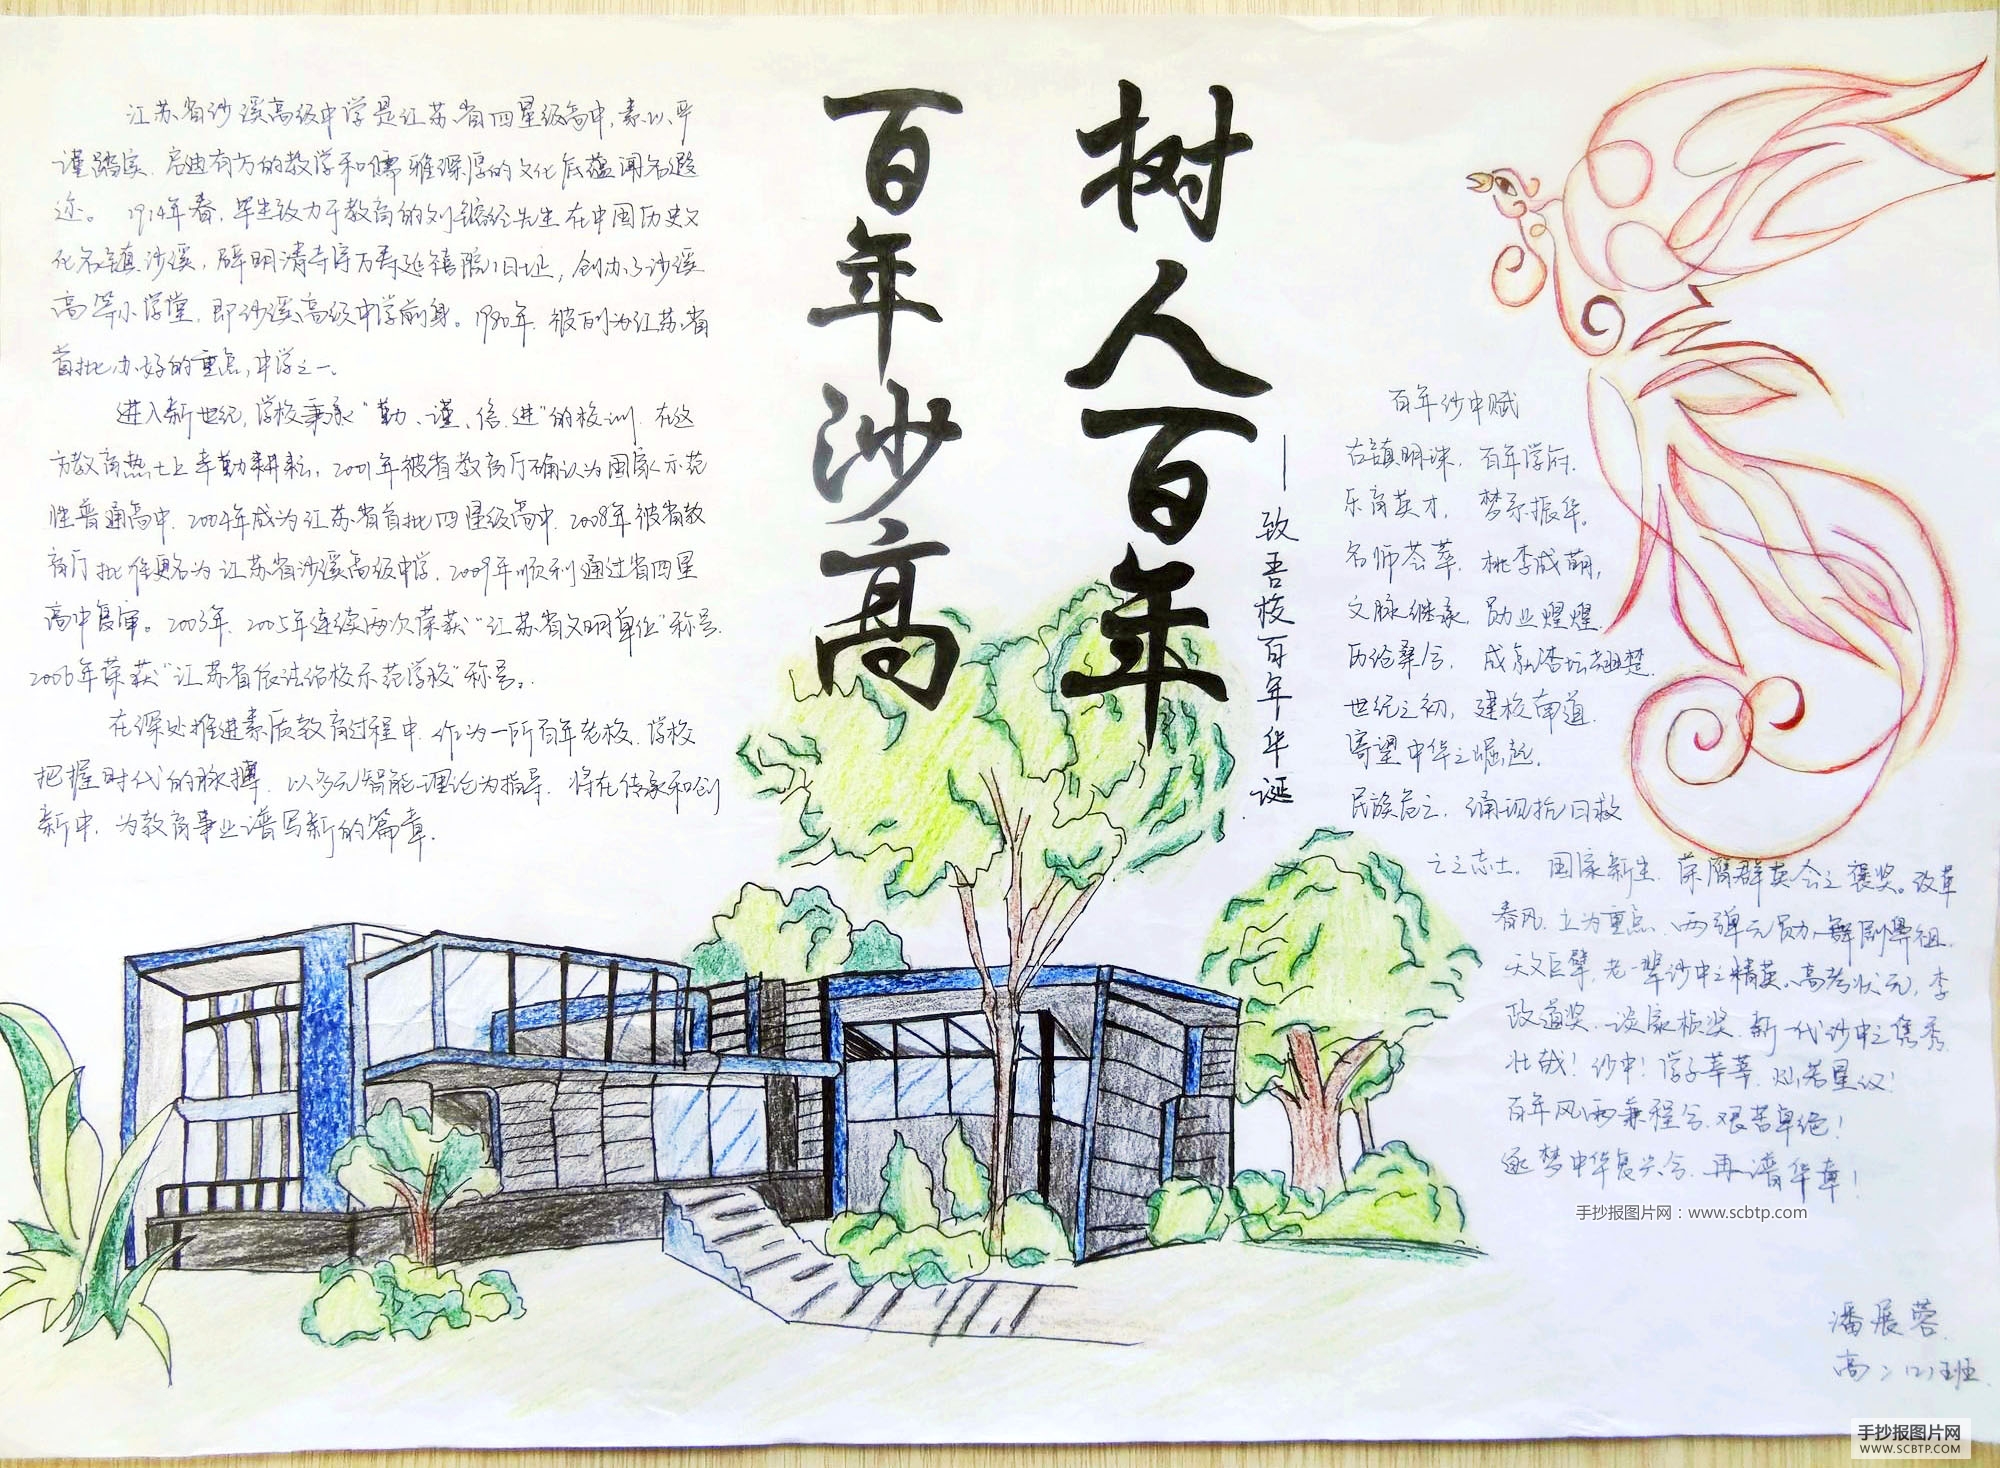 江苏省沙溪高级中学是江苏省四星级高中，素以严
谨踏实、启迪有方的教学和儒雅深厚的文化底蕴闻名遐
迩。1914年春，毕生致力于教育的刘 经先生在中国历史文
化名镇沙溪，辟明清寺宇万寿延禧院旧址，创办了沙溪
高等小学堂，即沙溪高级中学前身。1980年，被列为江苏省
首批办好的重点中学之一。
进入新世纪，学校秉承“勤、谨、信、进”的校训，在这
方教育热土上辛勤耕耘，2001年被省教育厅确认为国家示范
性普通高中，2004年成为江苏省首批四星级高中，2008年被省教
育厅批准更名为江苏省沙溪高级中学，2009年顺利通过省四星
高中复审。2003年、2005年连续两次荣获“江苏省文明单位”称号，
2006年荣获“江苏省依法治校示范学校”称号。
在深处推进素质教育过程中，作为一所百年老校，学校
把握时代的脉搏，以多元智能理论为指导，将在传承和创
新中，为教育事业谱写新的篇章。
树人百年
百年沙高
——致吾校百年华诞
百年沙中赋
古镇明珠，百年学府。
乐育英才，梦系振华。
名师荟萃，桃李成荫，
文脉继承，勋业煌煌。
历沧桑兮，成就杏坛翘楚。
世纪之初，建校南道，
寄望中华之崛起。
民族危亡，涌现抗日救
亡之志士。国家新生，荣膺群英会之褒奖。改革
春风，立为重点、两弹元勋、 鼻祖、
天文巨擘，老一辈沙中之精英、高考状元，李
政道奖、谈家桢奖，新一代沙中之隽秀，
壮哉！沙中！学子莘莘，灿若星汉！
百年风雨兼程兮，艰苦卓绝！
逐梦中华复兴兮，再谱华章！
手抄报图片网：www.scbtp.com
潘展蓉
高二(2)班
手抄报图片网
WWW.SCBTP.COM